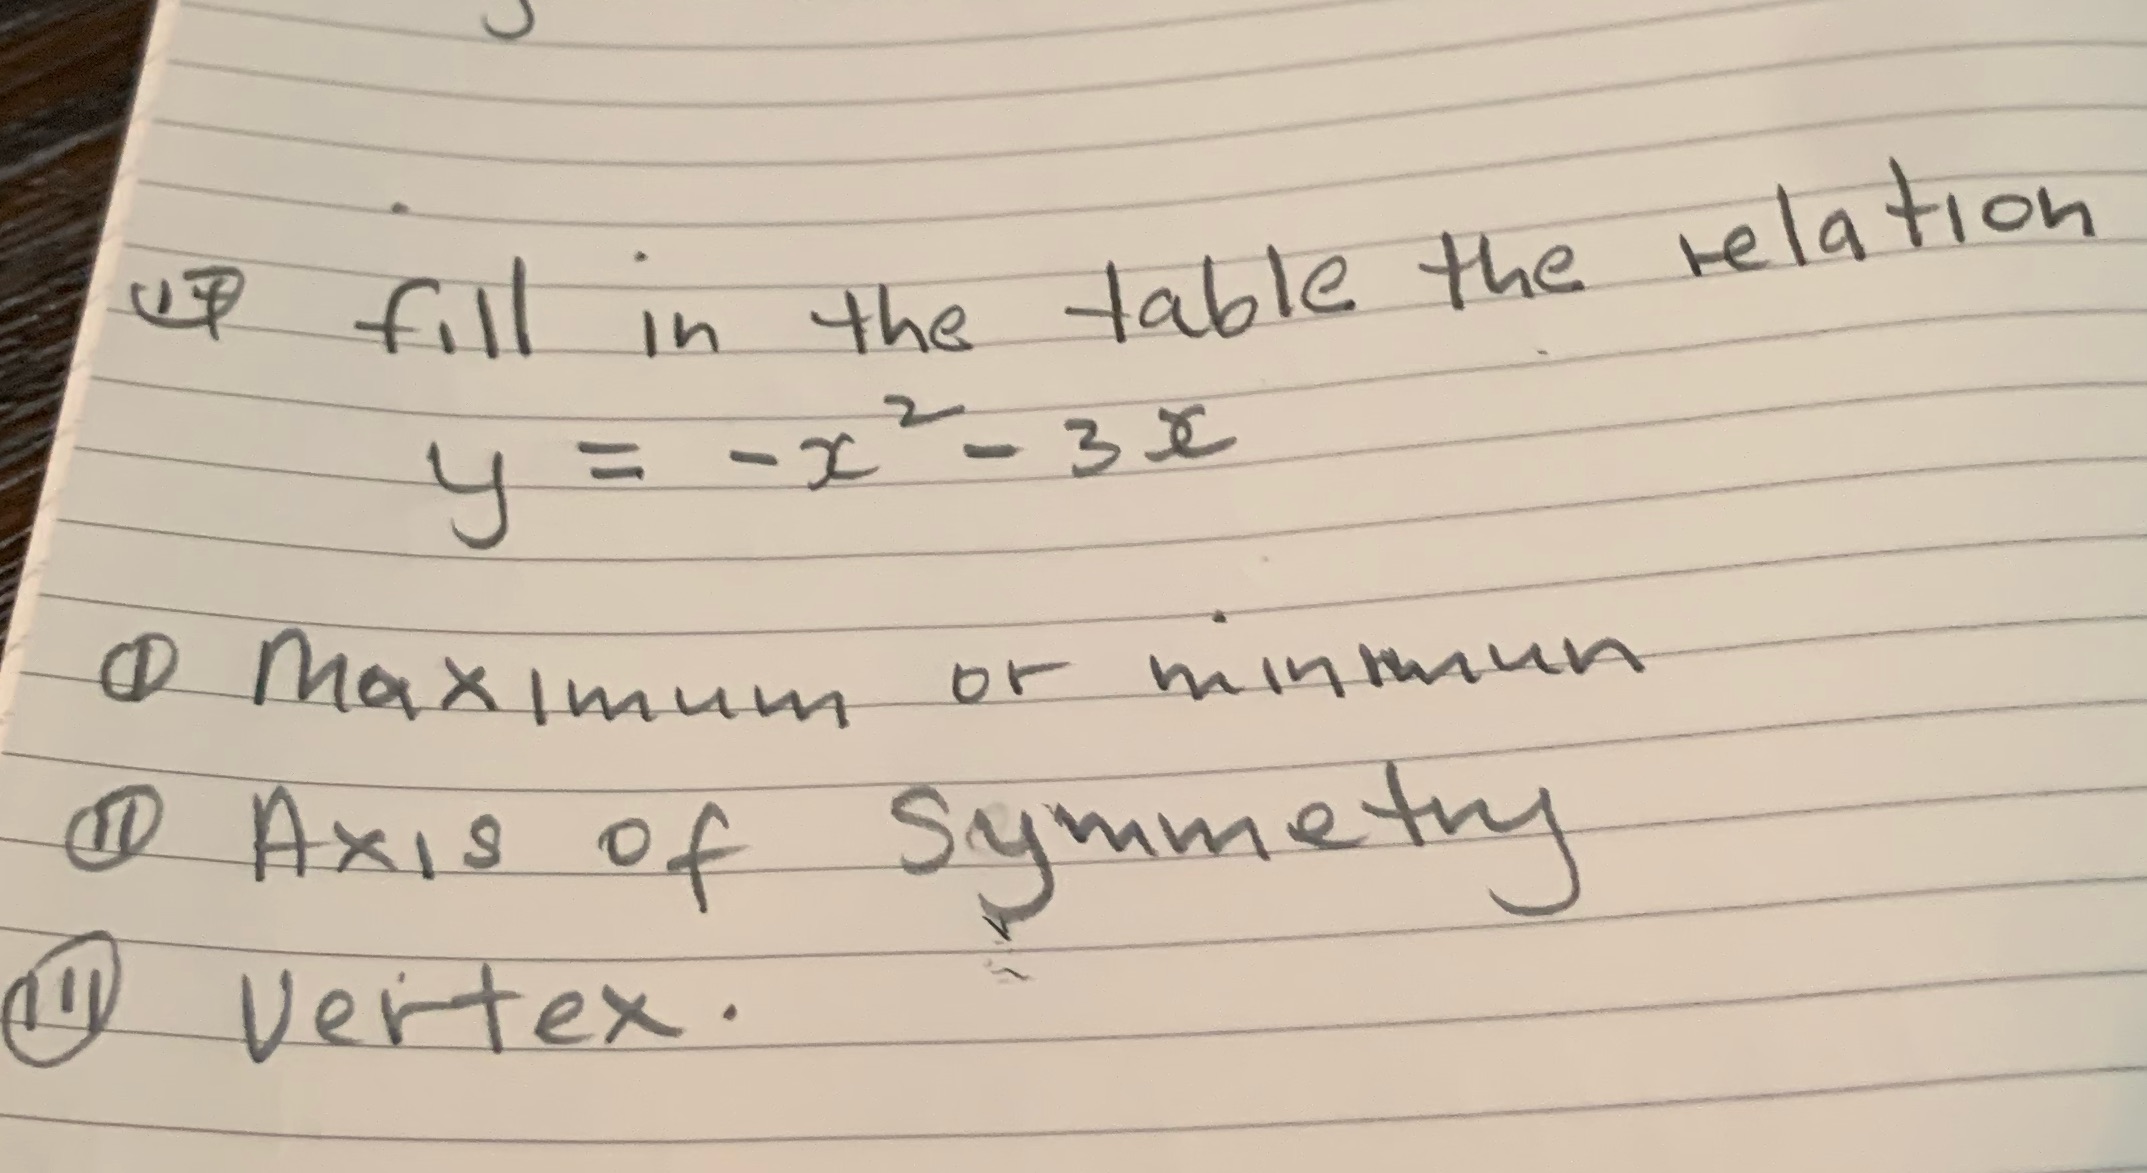 17 fill in the table the relation
y = -x² - 3x
I Maximum or minimun
II Axis of Symmetry
III Vertex.